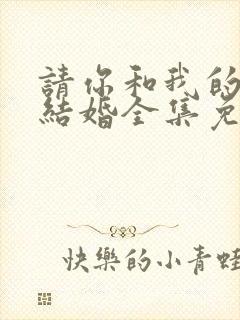 請你和我的
結婚全集免
快樂的小青蛙